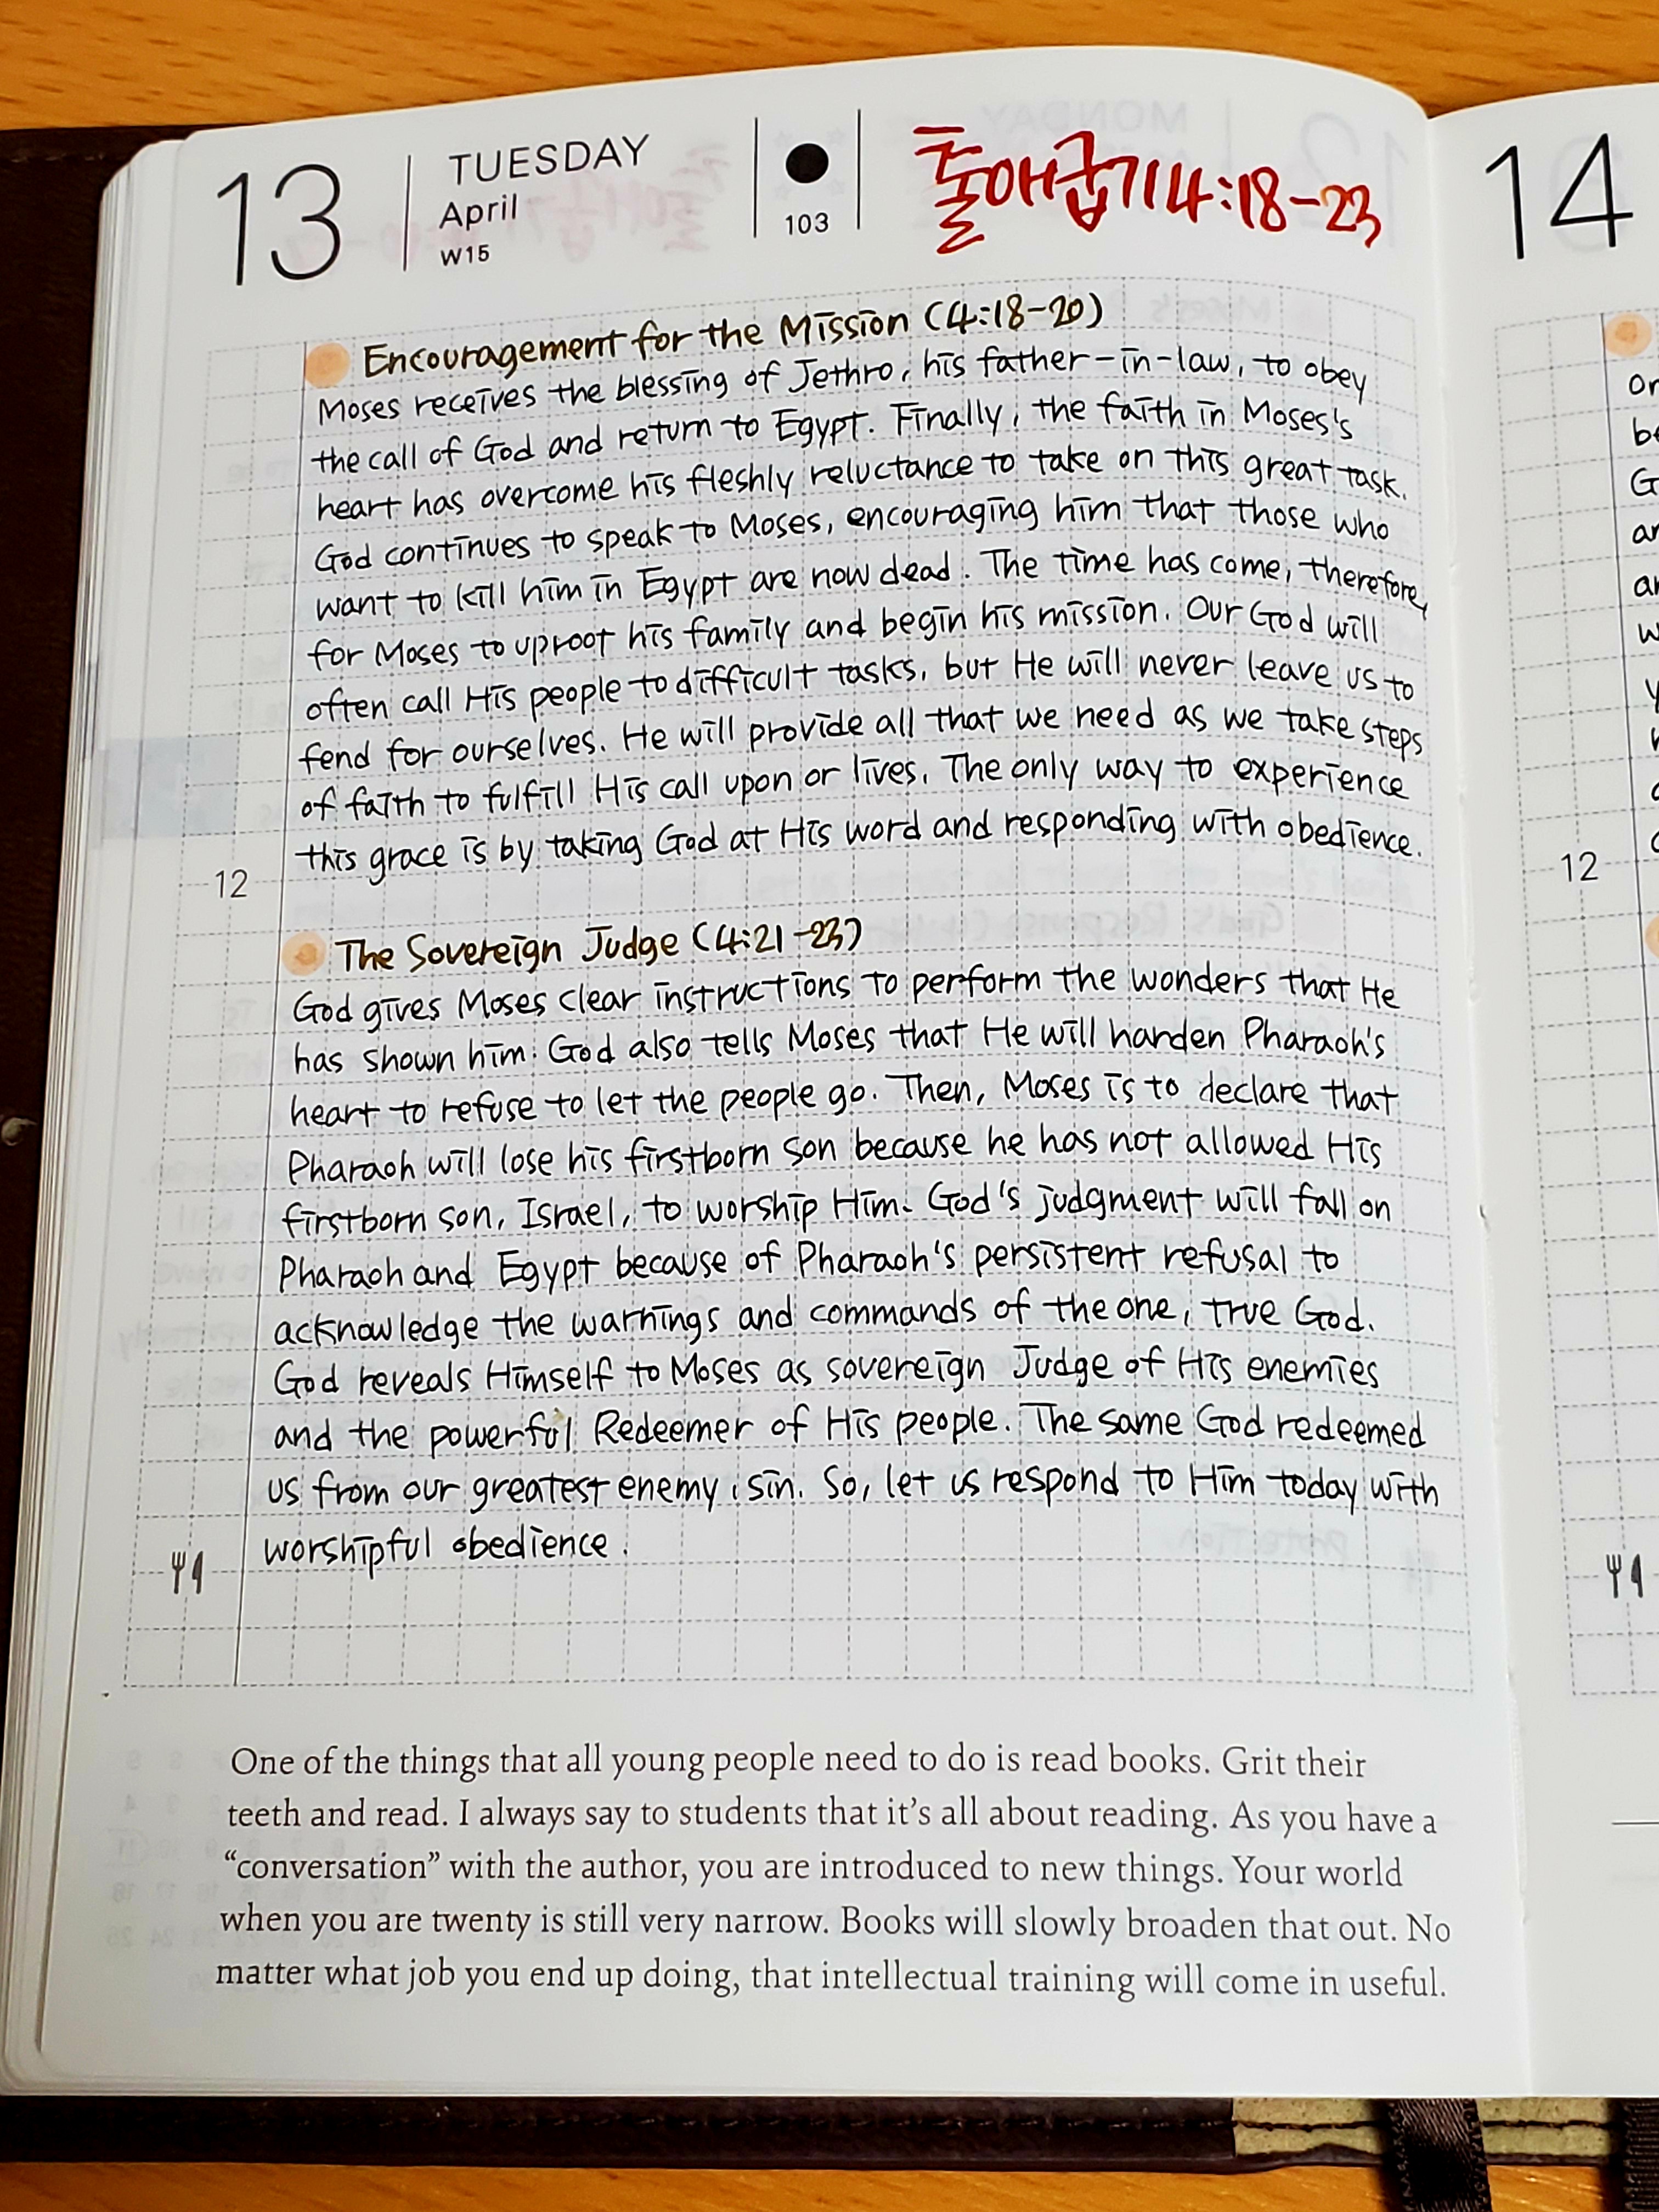 13
TUESDAY
April
W15
103
출애굽기 4:18-23
Encouragement for the Mission (4:18-20)
Moses receives the blessing of Jethro, his father-in-law, to obey
the call of God and return to Egypt. Finally, the faith in Moses's
heart has overcome his fleshly reluctance to take on this great task.
God continues to speak to Moses, encouraging him that those who
want to kill him in Egypt are now dead. The time has come, therefore,
for Moses to uproot his family and begin his mission. Our God will
often call His people to difficult tasks, but He will never leave us to
fend for ourselves. He will provide all that we need as we take steps
of faith to fulfill His call upon or lives. The only way to experience
this grace is by taking God at His word and responding with obedience.
12
The Sovereign Judge (4:21-23)
God gives Moses clear instructions to perform the wonders that He
has shown him. God also tells Moses that He will harden Pharaoh's
heart to refuse to let the people go. Then, Moses is to declare that
Pharaoh will lose his firstborn son because he has not allowed His
firstborn son, Israel, to worship Him. God's judgment will fall on
Pharaoh and Egypt because of Pharaoh's persistent refusal to
acknowledge the warnings and commands of the one, true God.
God reveals Himself to Moses as sovereign Judge of His enemies
and the powerful Redeemer of His people. The same God redeemed
us from our greatest enemy, sin. So, let us respond to Him today with
worshipful obedience.
One of the things that all young people need to do is read books. Grit their
teeth and read. I always say to students that it's all about reading. As you have a
“conversation” with the author, you are introduced to new things. Your world
when you are twenty is still very narrow. Books will slowly broaden that out. No
matter what job you end up doing, that intellectual training will come in useful.
14
12